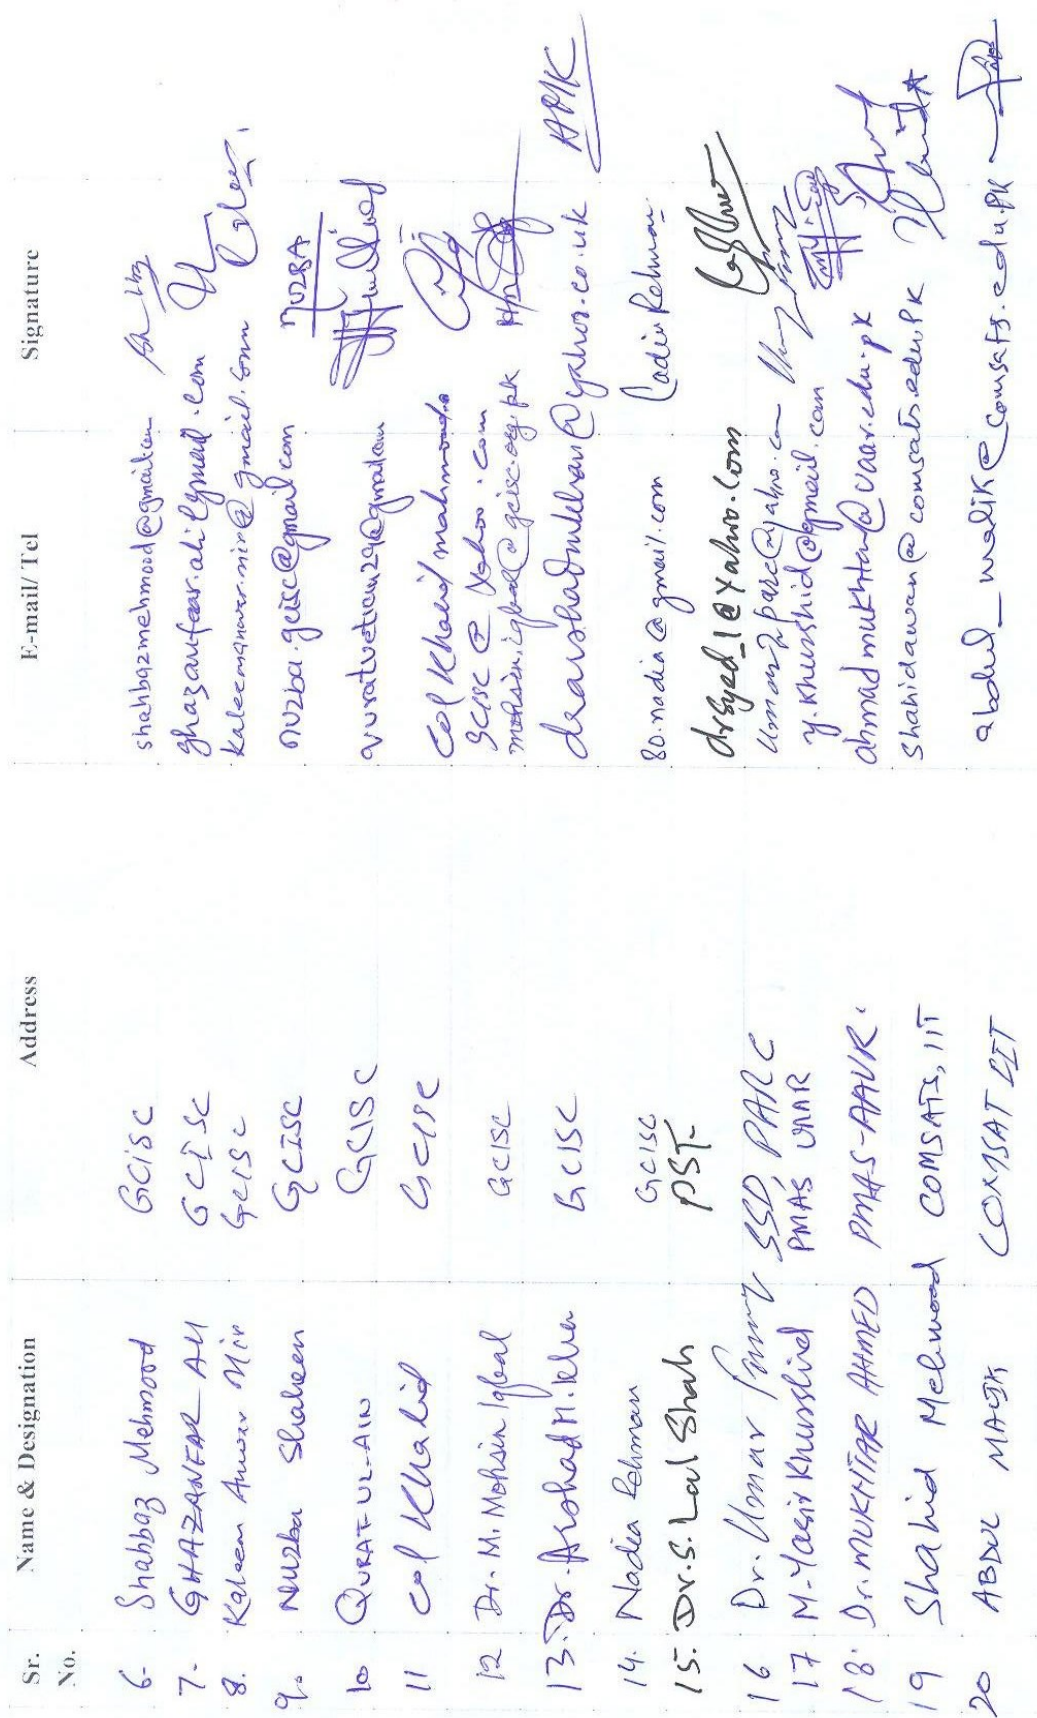 Sr. No. Name & Designation Address E-mail/ Tel Signature
6- Shahbaz Mehmood GCISC shahbazmehmood@gmail.com
7- GHAZANFAR ALI GCISC ghazanfaar.ali@gmail.com
8. Kaleem Anwar Mir GCISC kaleemanwar.mir@gmail.com Kaleem
9. Nuzba Shaheen GCISC nuzba.gcisc@gmail.com NUZBA
10 QURAT-UL-AIN GCISC quratuetian29@gmail.com
11 Col Khalid GCISC Col Khalid mahmood
gcisc@yahoo.com
12 Dr. M. Mohsin Iqbal GCISC mohsin.iqbal@gcisc.org.pk
13. Dr. Arshad M. Khan GCISC drarshadmkhan@yahoo.co.uk AMK
14. Nadia Rehman GCISC 80.nadia@gmail.com Nadia Rehman
15. Dr. S. Lal Shah PSF drsyed_1@yahoo.com
16 Dr. Umar Farooq SSD, PARC umar2parc@yahoo.com
17 M-Yasir Khurshid PMAS UAAR y.khurshid@gmail.com
18. Dr. MUKHTAR AHMED PMAS-AAUR. ahmadmukhtar@uaar.edu.pk
19 Shahid Mehmood COMSATS, IIT shahidawan@comsats.edu.pk
20 ABDUL MALIK COMSAT IIT abdul_malik@comsats.edu.pk